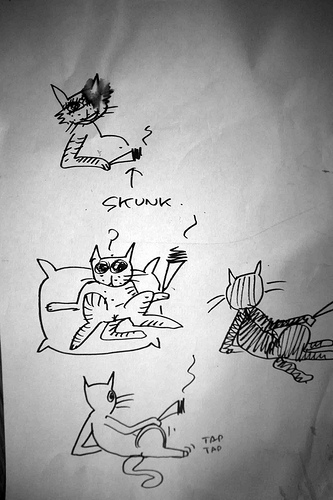 SKUNK.
?
TAP
TAP